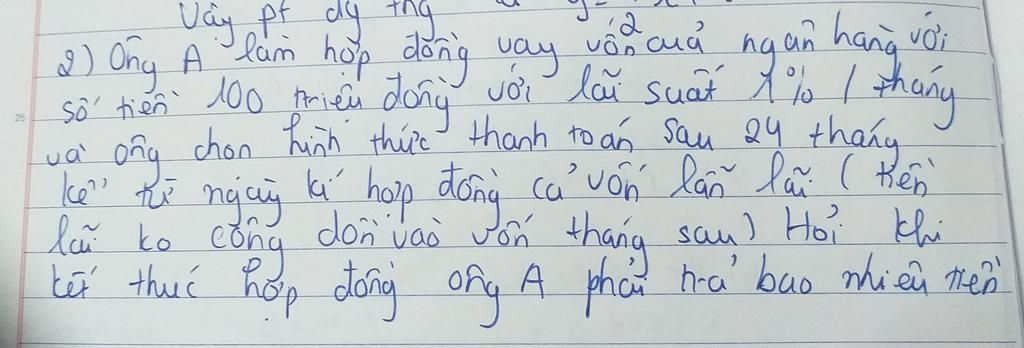 Vậy pt dg thg
2) Ông A làm hợp đồng vay vốn 2 cuả ngân hàng với
số tiền 100 triệu đồng với lãi suất 1% / tháng
và ông chọn hình thức thanh toán sau 24 tháng
kể từ ngày kí hợp đồng cả vốn lẫn lãi (tiền
lãi ko cộng dồn vào vốn tháng sau) Hỏi khi
kết thúc hợp đồng ông A phải trả bao nhiêu tiền